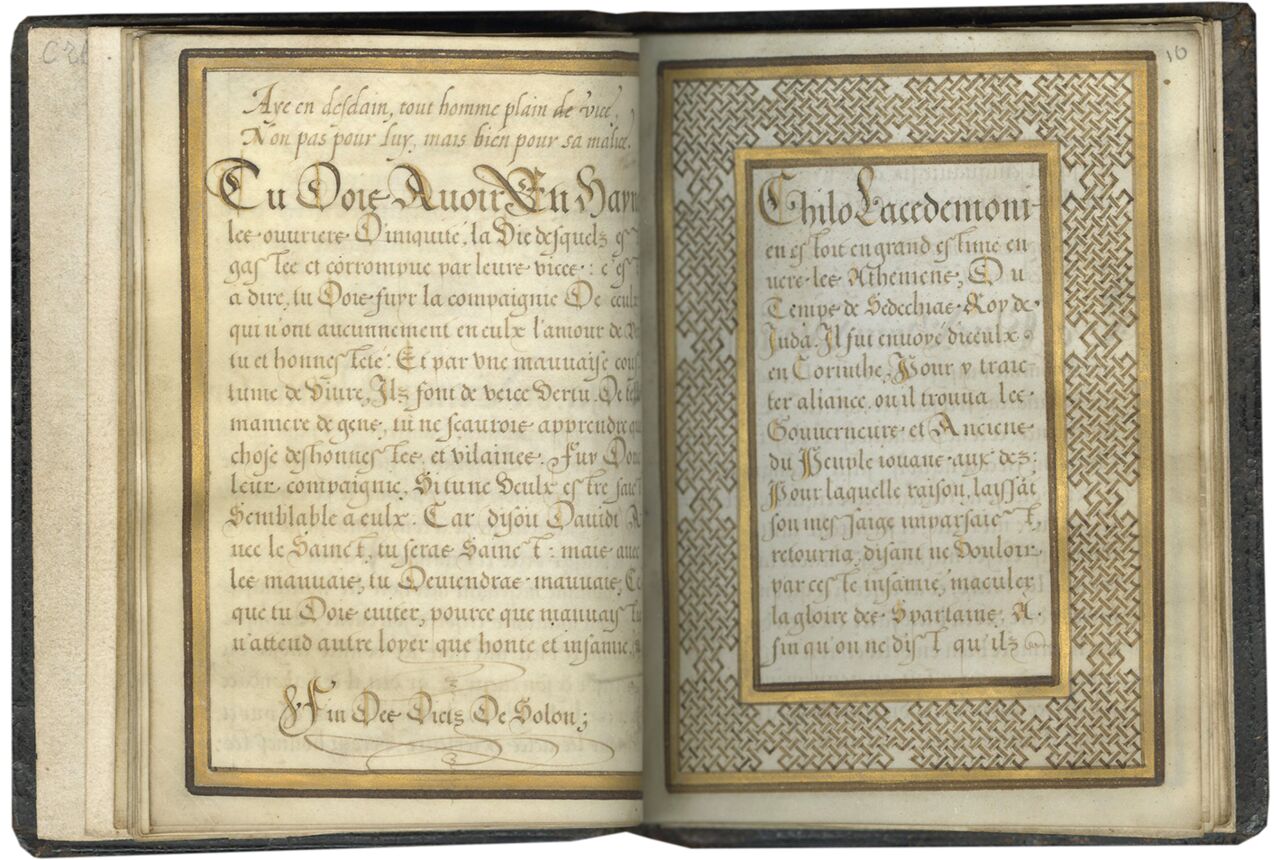 Aye en desdain, tout homme plain de vice,
Non pas pour luy, mais bien pour sa malice.
Tu Dois Avoir En Hayn
les ouuriers D'iniquité, la Vie desquelz es
gastee et corrompue par leurs vices : c'es
a dire, tu Dois fuyr la compaignie De ceulx
qui n'ont aucunnement en eulx l'amour de
tu et honnesteté : Et par vne mauuaise cous
tume de Viure, Ilz font de vices Vertu. De
maniere de gens, tu ne scaurois apprendre que
chose deshonnestes, et vilaines. Fuy Donc
leur compaignie, Si tu ne Veulx estre faict
Semblable a eulx. Car disou Dauidt, A
uec le Sainct, tu seras Sainct : mais auec
les mauuais, tu Deuiendras mauuais, Ce
que tu Dois euiter, pource que mauuaistu
n'attend autre loyer que honte et infamie,
Fin Des Dictz De Solon;
10
Chilo Lacedemoni-
en estoit en grand estime en
uers les Atheniens, Du
Temps de Sedechias Roy de
Juda. Il fut enuoyé d'iceulx
en Corinthe, Pour y traic
ter aliance, ou il trouua les
Gouuerneurs et Anciens
du Peuple iouans aux dez:
Pour laquelle raison, laissāt
son messaige imparfaict,
retourna, disant ne Vouloir
par ceste infamie, maculer
la gloire des Spartains, A
fin qu'on ne dist qu'ilz